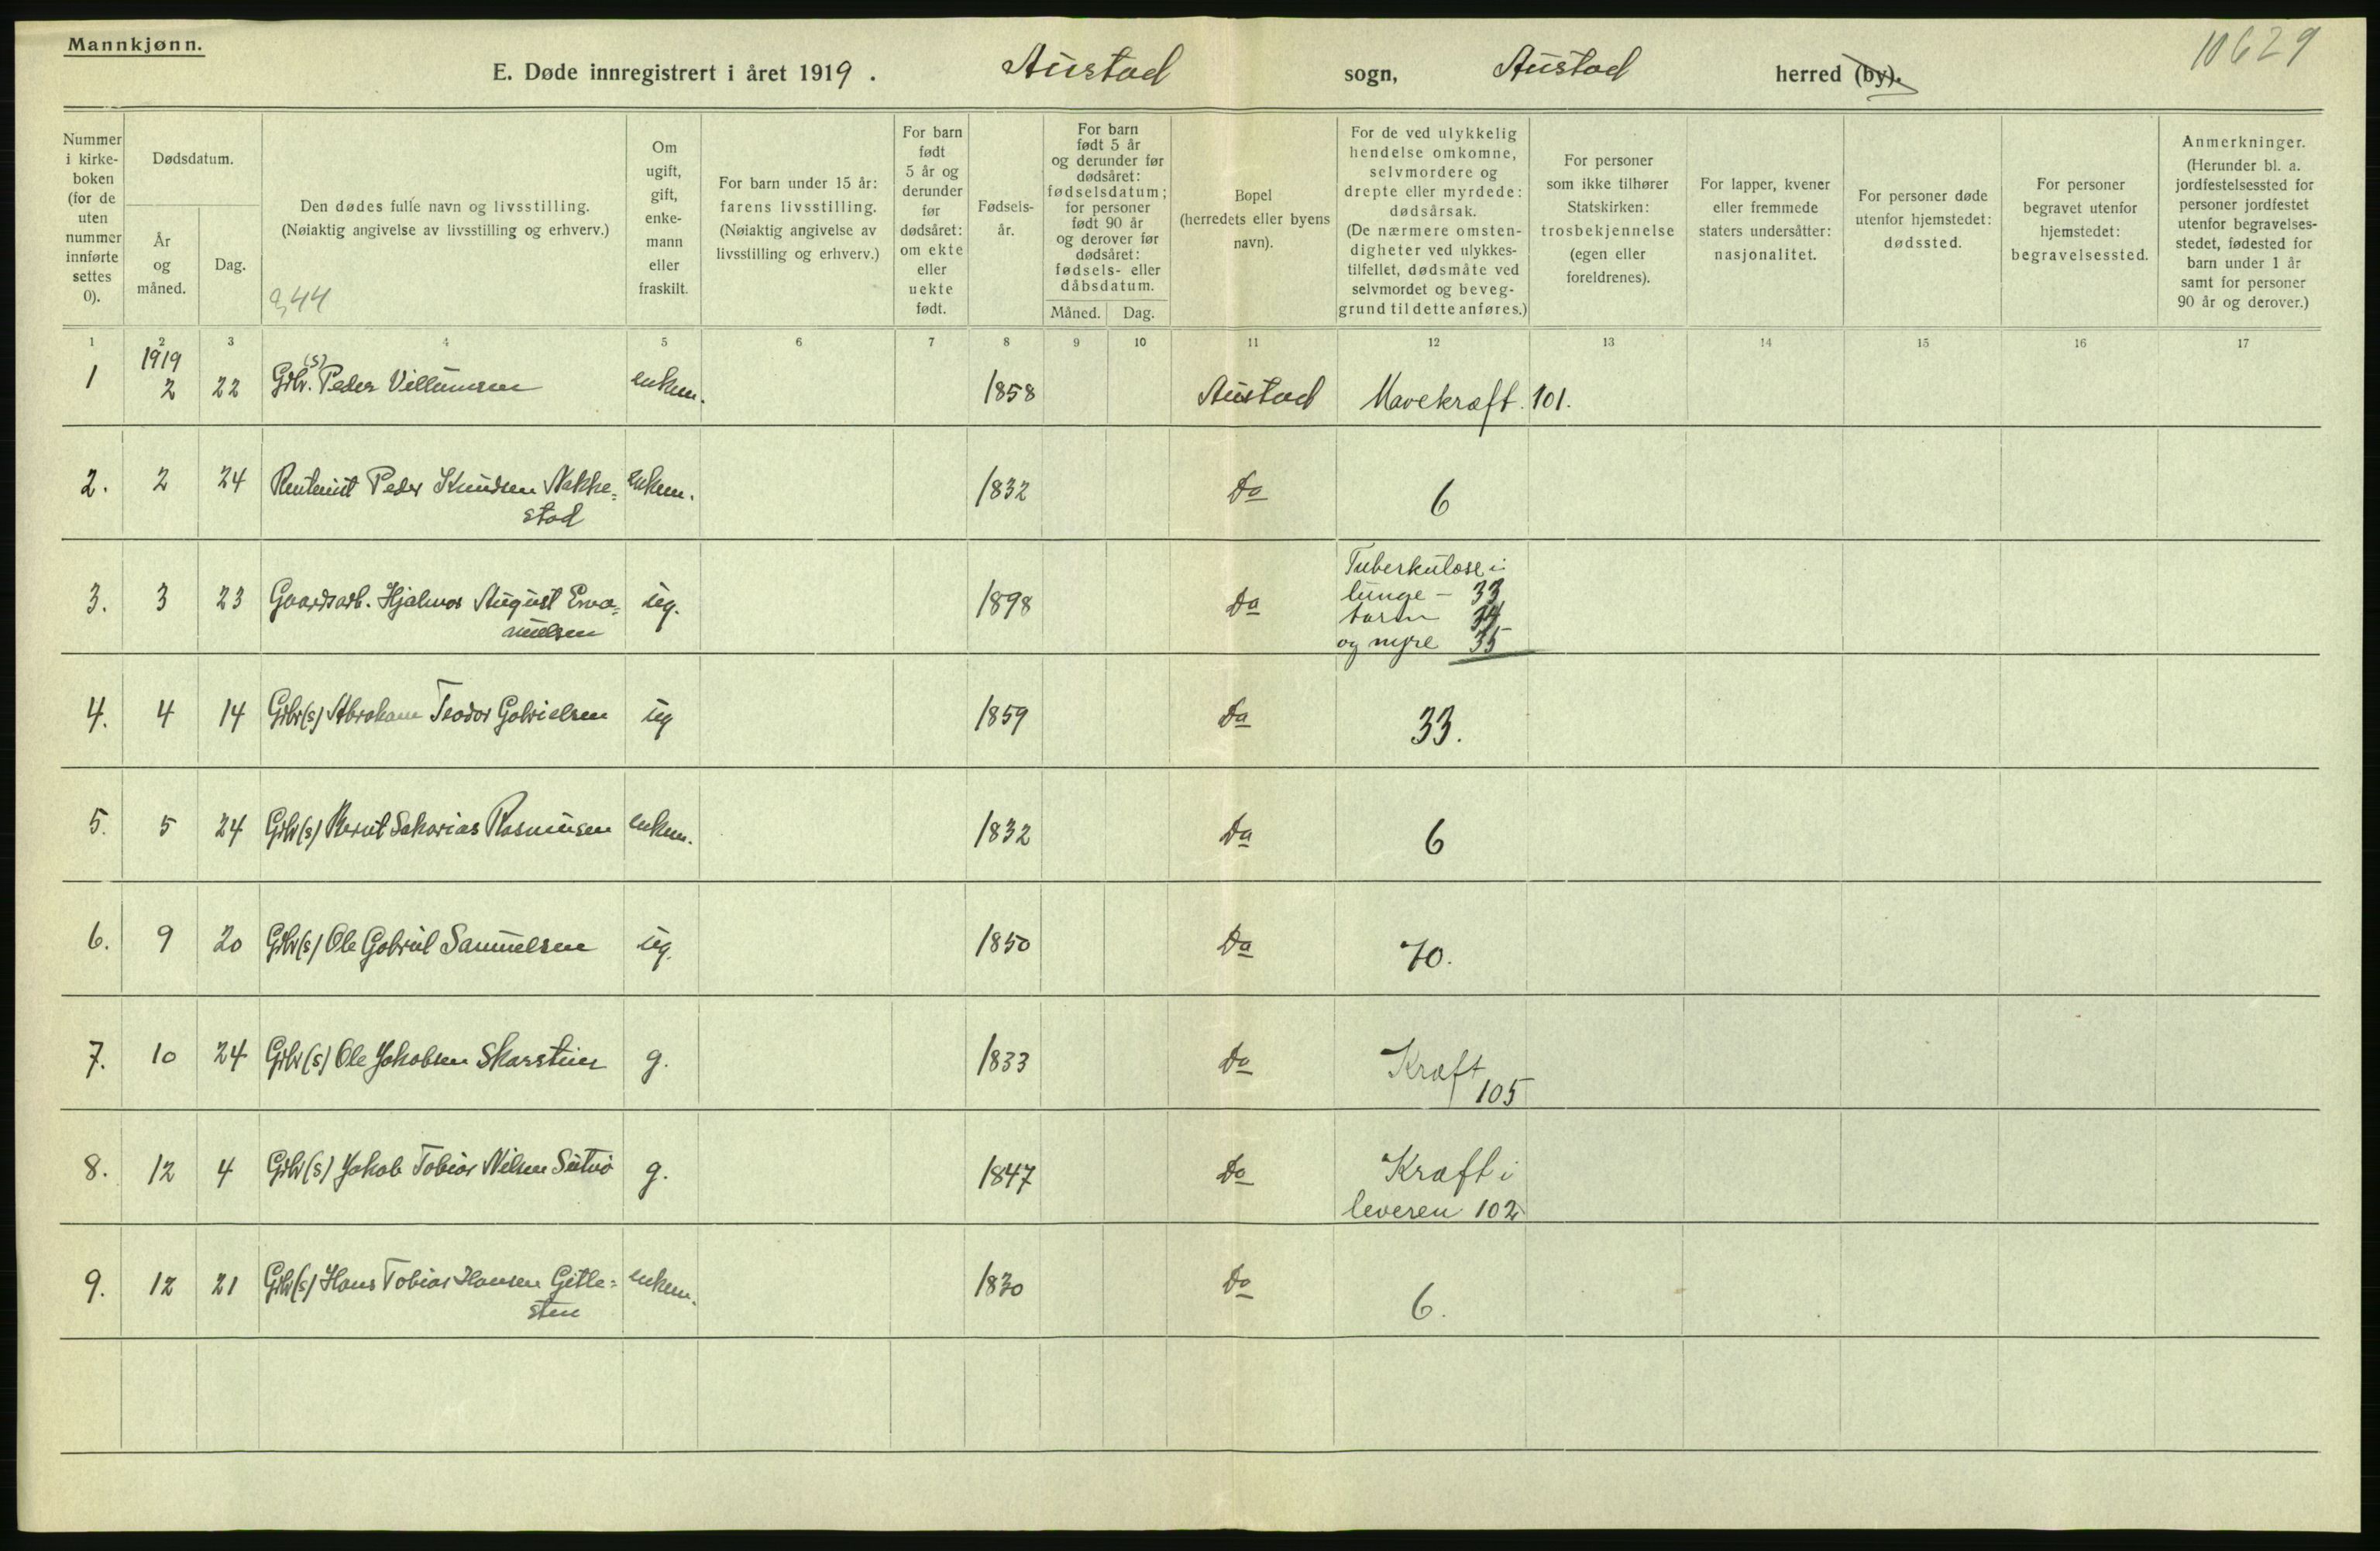 Mannkjønn.
10629
E. Døde innregistrert i året 1919. Austad sogn, Austad herred (by).
Nummer i kirkeboken (for de uten nummer innførte settes 0).
Dødsdatum.
År og måned.
Dag.
Den dødes fulle navn og livsstilling.
(Nøiaktig angivelse av livsstilling og erhverv.)
344
Om ugift, gift, enkemann eller fraskilt.
For barn under 15 år: farens livsstilling. (Nøiaktig angivelse av livsstilling og erhverv.)
For barn født 5 år og derunder før dødsåret: om ekte eller uekte født.
Fødselsår.
For barn født 5 år og derunder før dødsåret: fødselsdatum; for personer født 90 år og derover før dødsåret: fødsels- eller dåbsdatum.
Måned. Dag.
Bopel (herredets eller byens navn).
For de ved ulykkelig hendelse omkomne, selvmordere og drepte eller myrdede: dødsårsak. (De nærmere omstendigheter ved ulykkestilfellet, dødsmåte ved selvmordet og beveggrund til dette anføres.)
For personer som ikke tilhører Statskirken: trosbekjennelse (egen eller foreldrenes).
For lapper, kvener eller fremmede staters undersåtter: nasjonalitet.
For personer døde utenfor hjemstedet: dødssted.
For personer begravet utenfor hjemstedet: begravelsessted.
Anmerkninger. (Herunder bl. a. jordfestelsessted for personer jordfestet utenfor begravelsesstedet, fødested for barn under 1 år samt for personer 90 år og derover.)
1 2 3 4 5 6 7 8 9 10 11 12 13 14 15 16 17
1919
1 2 22 Gbr.(s) Peder Villumsen enkem. 1858 Austad Mavekræft. 101.
2. 2 24 Rentenist Peder Knudsen Nakke= enkem. 1832 Do 6
stad
3. 3 23 Gaardsarb. Hjalmar August Ema= ug. 1898 Do Tuberkulose i
lunge - 33
tarm 34
anuelsen og nyre 35
4. 4 14 Gbr(s) Abraham Teodor Gabrielsen ug 1859 Do 33.
5. 5 24 Gbr(s) Bernt Sakarias Rasmusen enkem. 1832 Do 6
6. 9 20 Gbr(s) Ole Gabriel Samuelsen ug. 1850 Do 70.
7. 10 24 Gbr(s) Ole Jakobsen Skarstein g. 1833 Do Kræft
105
8. 12 4 Gbr(s) Jakob Tobias Nilsen g. 1847 Do Kræft i
leveren 102
9. 12 21 Gbr(s) Hans Tobias Hansen Gitle= enkem. 1830 Do 6.
sten